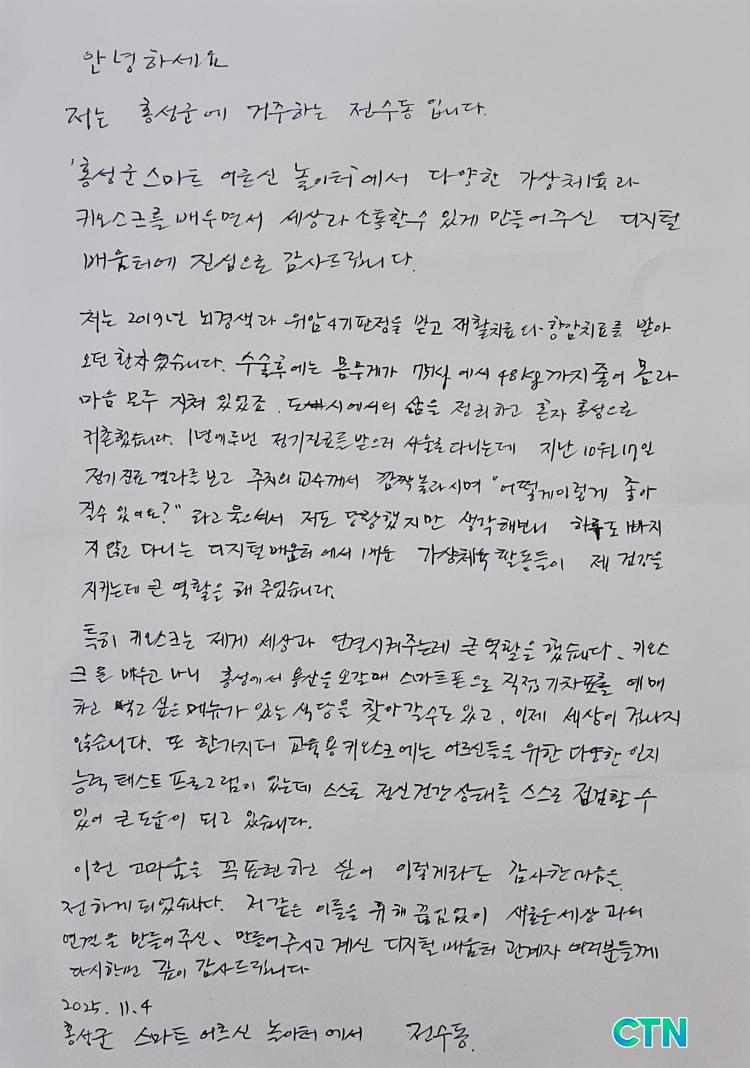 안녕하세요
저는 홍성군에 거주하는 전수동입니다.
'홍성군 스마트 어르신 놀이터'에서 다양한 가상체육과
키오스크를 배우면서 세상과 소통할수 있게 만들어주신 디지털
배움터에 진심으로 감사드립니다.
저는 2019년 뇌경색과 위암4기판정을 받고 재활치료와 항암치료를 받아
오던 환자였습니다. 수술후에는 몸무게가 75kg에서 48kg까지 줄어 몸과
마음 모두 지쳐 있었죠. 도시에서의 삶을 정리하고 혼자 홍성으로
귀촌했습니다. 1년에두번 정기진료를받으러 서울로다니는데 지난 10월17일
정기진료 결과를보고 주치의 교수께서 깜짝놀라시며 "어떻게이렇게 좋아
질수 있어요?" 라고 물으셔서 저도 당황했지만 생각해보니 하루도 빠지
지 않고 다니는 디지털배움터에서 배운 가상체육 활동들이 제 건강을
지키는데 큰 역할을 해 주었습니다.
특히 키오스크는 제게 세상과 연결시켜주는데 큰역할을 했습니다. 키오스
크를 배우고 나니 홍성에서 용산을 오갈때 스마트폰으로 직접 기차표를 예매
하고 먹고 싶은메뉴가 있는 식당을 찾아갈수도 있고, 이제 세상이 겁나지
않습니다. 또 한가지더 교육용 키오스크에는 어르신들을 위한 다양한 인지
능력 테스트 프로그램이 있는데 스스로 정신건강 상태를 스스로 점검할 수
있어 큰 도움이 되고 있습니다.
이런 고마움을 꼭표현하고 싶어 이렇게라도 감사한마음을
전하게 되었습니다. 저 같은 이들을 위해 끊임없이 새로운세상 과의
연결을 만들어주신, 만들어주시고 계신 디지털 배움터 관계자 여러분들께
다시한번 깊이 감사드립니다
2025. 11. 4
홍성군 스마트 어르신 놀이터에서 전수동.
CTN